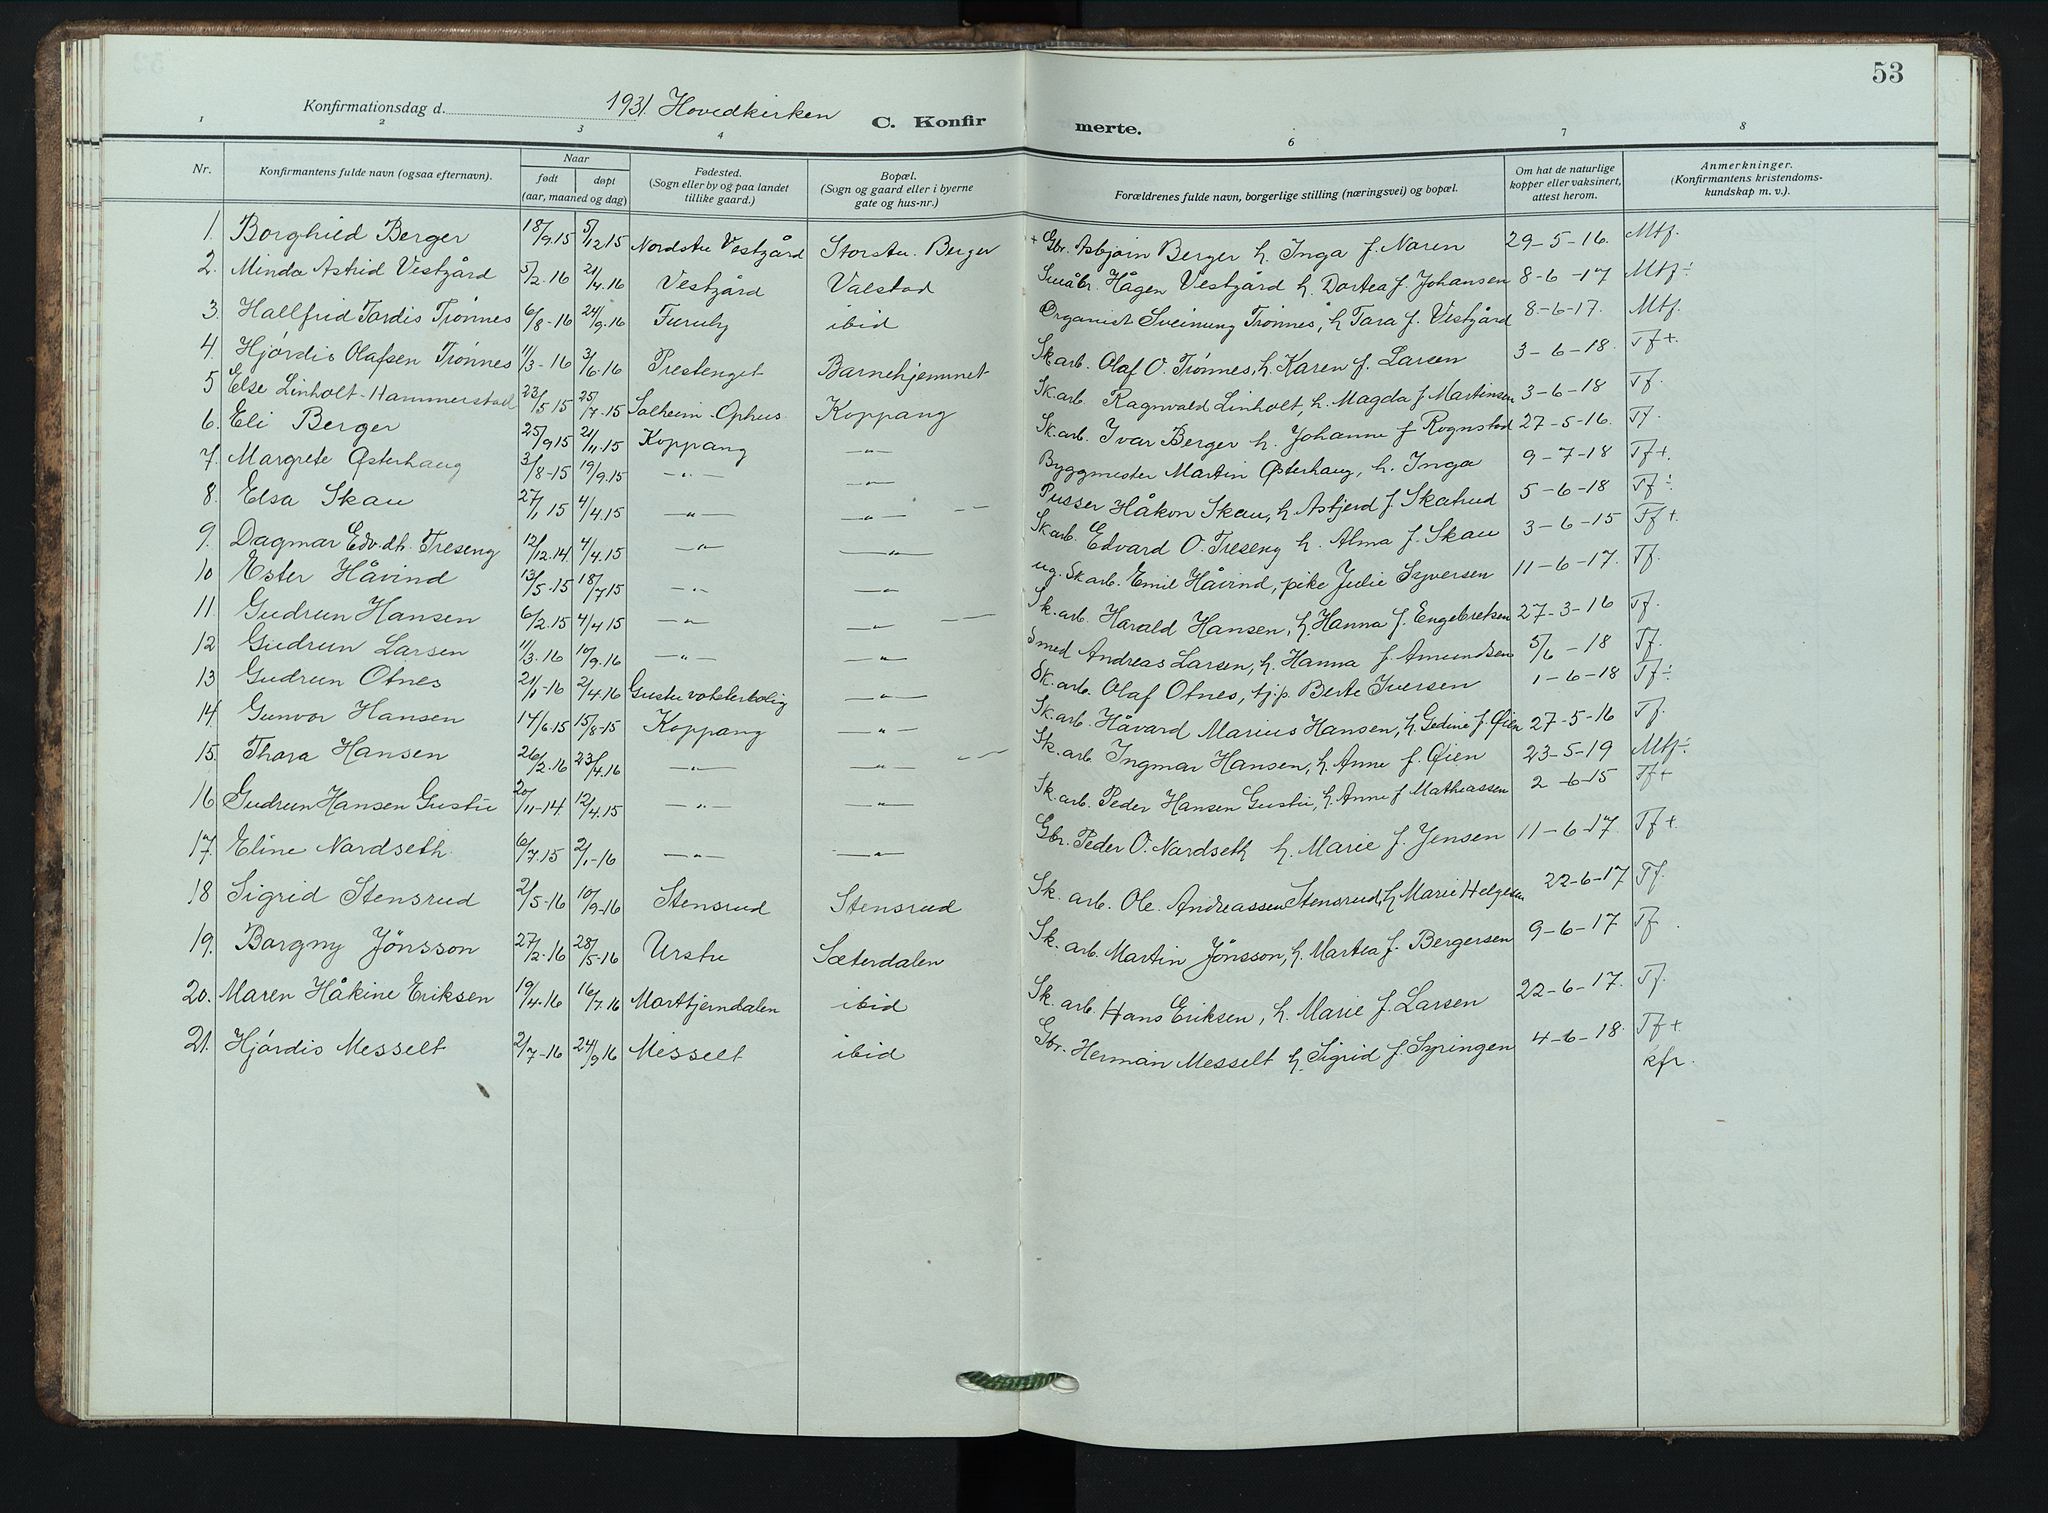 53
Konfirmationsdag d. 1931. Hovedkirken
C. Konfirmerte.
1 2 3 4 5 6 7 8
Nr. Konfirmantens fulde navn (ogsaa efternavn). Naar født døpt (aar, maaned og dag) Fødested. (Sogn eller by og paa landet tillike gaard.) Bopæl. (Sogn og gaard eller i byerne gate og hus-nr.) Forældrenes fulde navn, borgerlige stilling (næringsvei) og bopæl. Om hat de naturlige kopper eller vaksinert, attest herom. Anmerkninger. (Konfirmantens kristendomskundskap m. v.).
1. Borghild Berger 18/9.15 5/12 15 Nordstu Vestgård Storstu. Berger + Gbr. Asbjørn Berger h. Inga f. Naren 29-5-16. Mtf.
2. Minda Astrid Vestgård 5/2.16 21/4.16 Vestgård Valstad Småbr. Hågen Vestgård h. Dortea f. Johansen 8-6-17 Mtf÷
3. Hallfrid Tordis Trønnes 6/8-16 24/9.16 Furuly ibid Organist Sveinung Trønnes, h Tara f. Vestgård 8-6-17. Mtf.
4. Hjørdis Olafsen Trønnes 11/3-16 3/6.16 Prestenget Barnehjemmet Sk arb. Olaf O. Trønnes, h. Karen f. Larsen 3-6-18. Tf+.
5 Else Linholt-Hammerstad 23/5 15 25/7-15 Solheim-Ophus Koppang Sk. arb. Ragnvald Linholt, h. Magda f Martinsen 3-6-18 Tf.
6. Eli Berger 25/9.15 21/11.15 Koppang —"— Sk. arb. Ivar Berger h. Johanne f Rognstad 27-5-16. Tf.
7. Margrete Østerhaug 3/8-15 19/9.15 -"- —"— Byggmester Martin Østerhaug, h. Inga 9-7-18 Tf+.
8. Elsa Skau 27/1 15 4/4.15 —"— —"— Pusser Håkon Skau, h Asfjerd f. Skatrud 5-6-18 Tf÷
9. Dagmar Edv. dt. Treseng 12/12.14 4/4.15 —"— —"— Sk arb. Edvard O. Treseng h. Alma f. Skau 3-6-15 Tf+
10 Ester Håvind 13/5.15 18/7 15 —"— —"— ug. Sk arb. Emil Håvind, pike Julie Syversen 11-6-17. Tf.
11. Gudrun Hansen 6/2.15 4/4 15 —"— —"— Sk. arb. Harald Hansen, h. Hanna f. Engebretsen 27-3-16 Tf.
12 Gudrun Larsen 11/3.16 10/9.16 —"— —"— Smed Andreas Larsen, h. Hanna f Amundsen 5/6-18 Tf.
13 Gudrun Otnes 21/1-16 2/4.16 Gustu vokterbolig —"— Sk. arb. Olaf Otnes, tj.p. Berte Iversen 1-6-18 Tf÷
14 Gunvor Hansen 14/6.15 15/8-15 Koppang —"— Sk. arb. Håvard Marius Hansen, h Gedine f. Øien 27-5-16 Tf.
15. Thora Hansen 26/2.16 23/4.16 —"— —"— Sk. arb Ingmar Hansen, h. Anne f. Øien 23-5-19 Mtf÷
16 Gudrun Hansen Gustu 20/11-14 12/4.15 —"— —"— Sk. arb. Peder Hansen Gustu, h. Anne f Matheassen 2-6-15 Tf+
17. Eline Nordseth 6/7.15 2/1-16 —"— —"— Gbr. Peder O. Nordseth h. Marie f. Jensen 11-6-17. Tf+
18 Sigrid Stensrud 2/5-16 10/9-16 Stensrud Stensrud Sk. arb. Ole. Andreassen Stensrud, h Marie Helgesen 22-6-17 Tf.
19. Borgny Jönsson 27/2-16 28/5-16 Urstu Sæterdalen Sk. arb. Martin Jönsson, h. Martea f. Bergersen 9-6-17 Tf.
20. Maren Håkine Eriksen 19/4-16 16/7.16 Morttjerndalen ibid Sk. arb. Hans Eriksen, h. Marie f. Larsen 22-6-17. Tf.
21. Hjørdis Messelt 2/7-16 24/9 16 Messelt ibid Gbr. Herman Messelt h. Sigrid f. Syringen 4-6-18. Tf+
kfr.